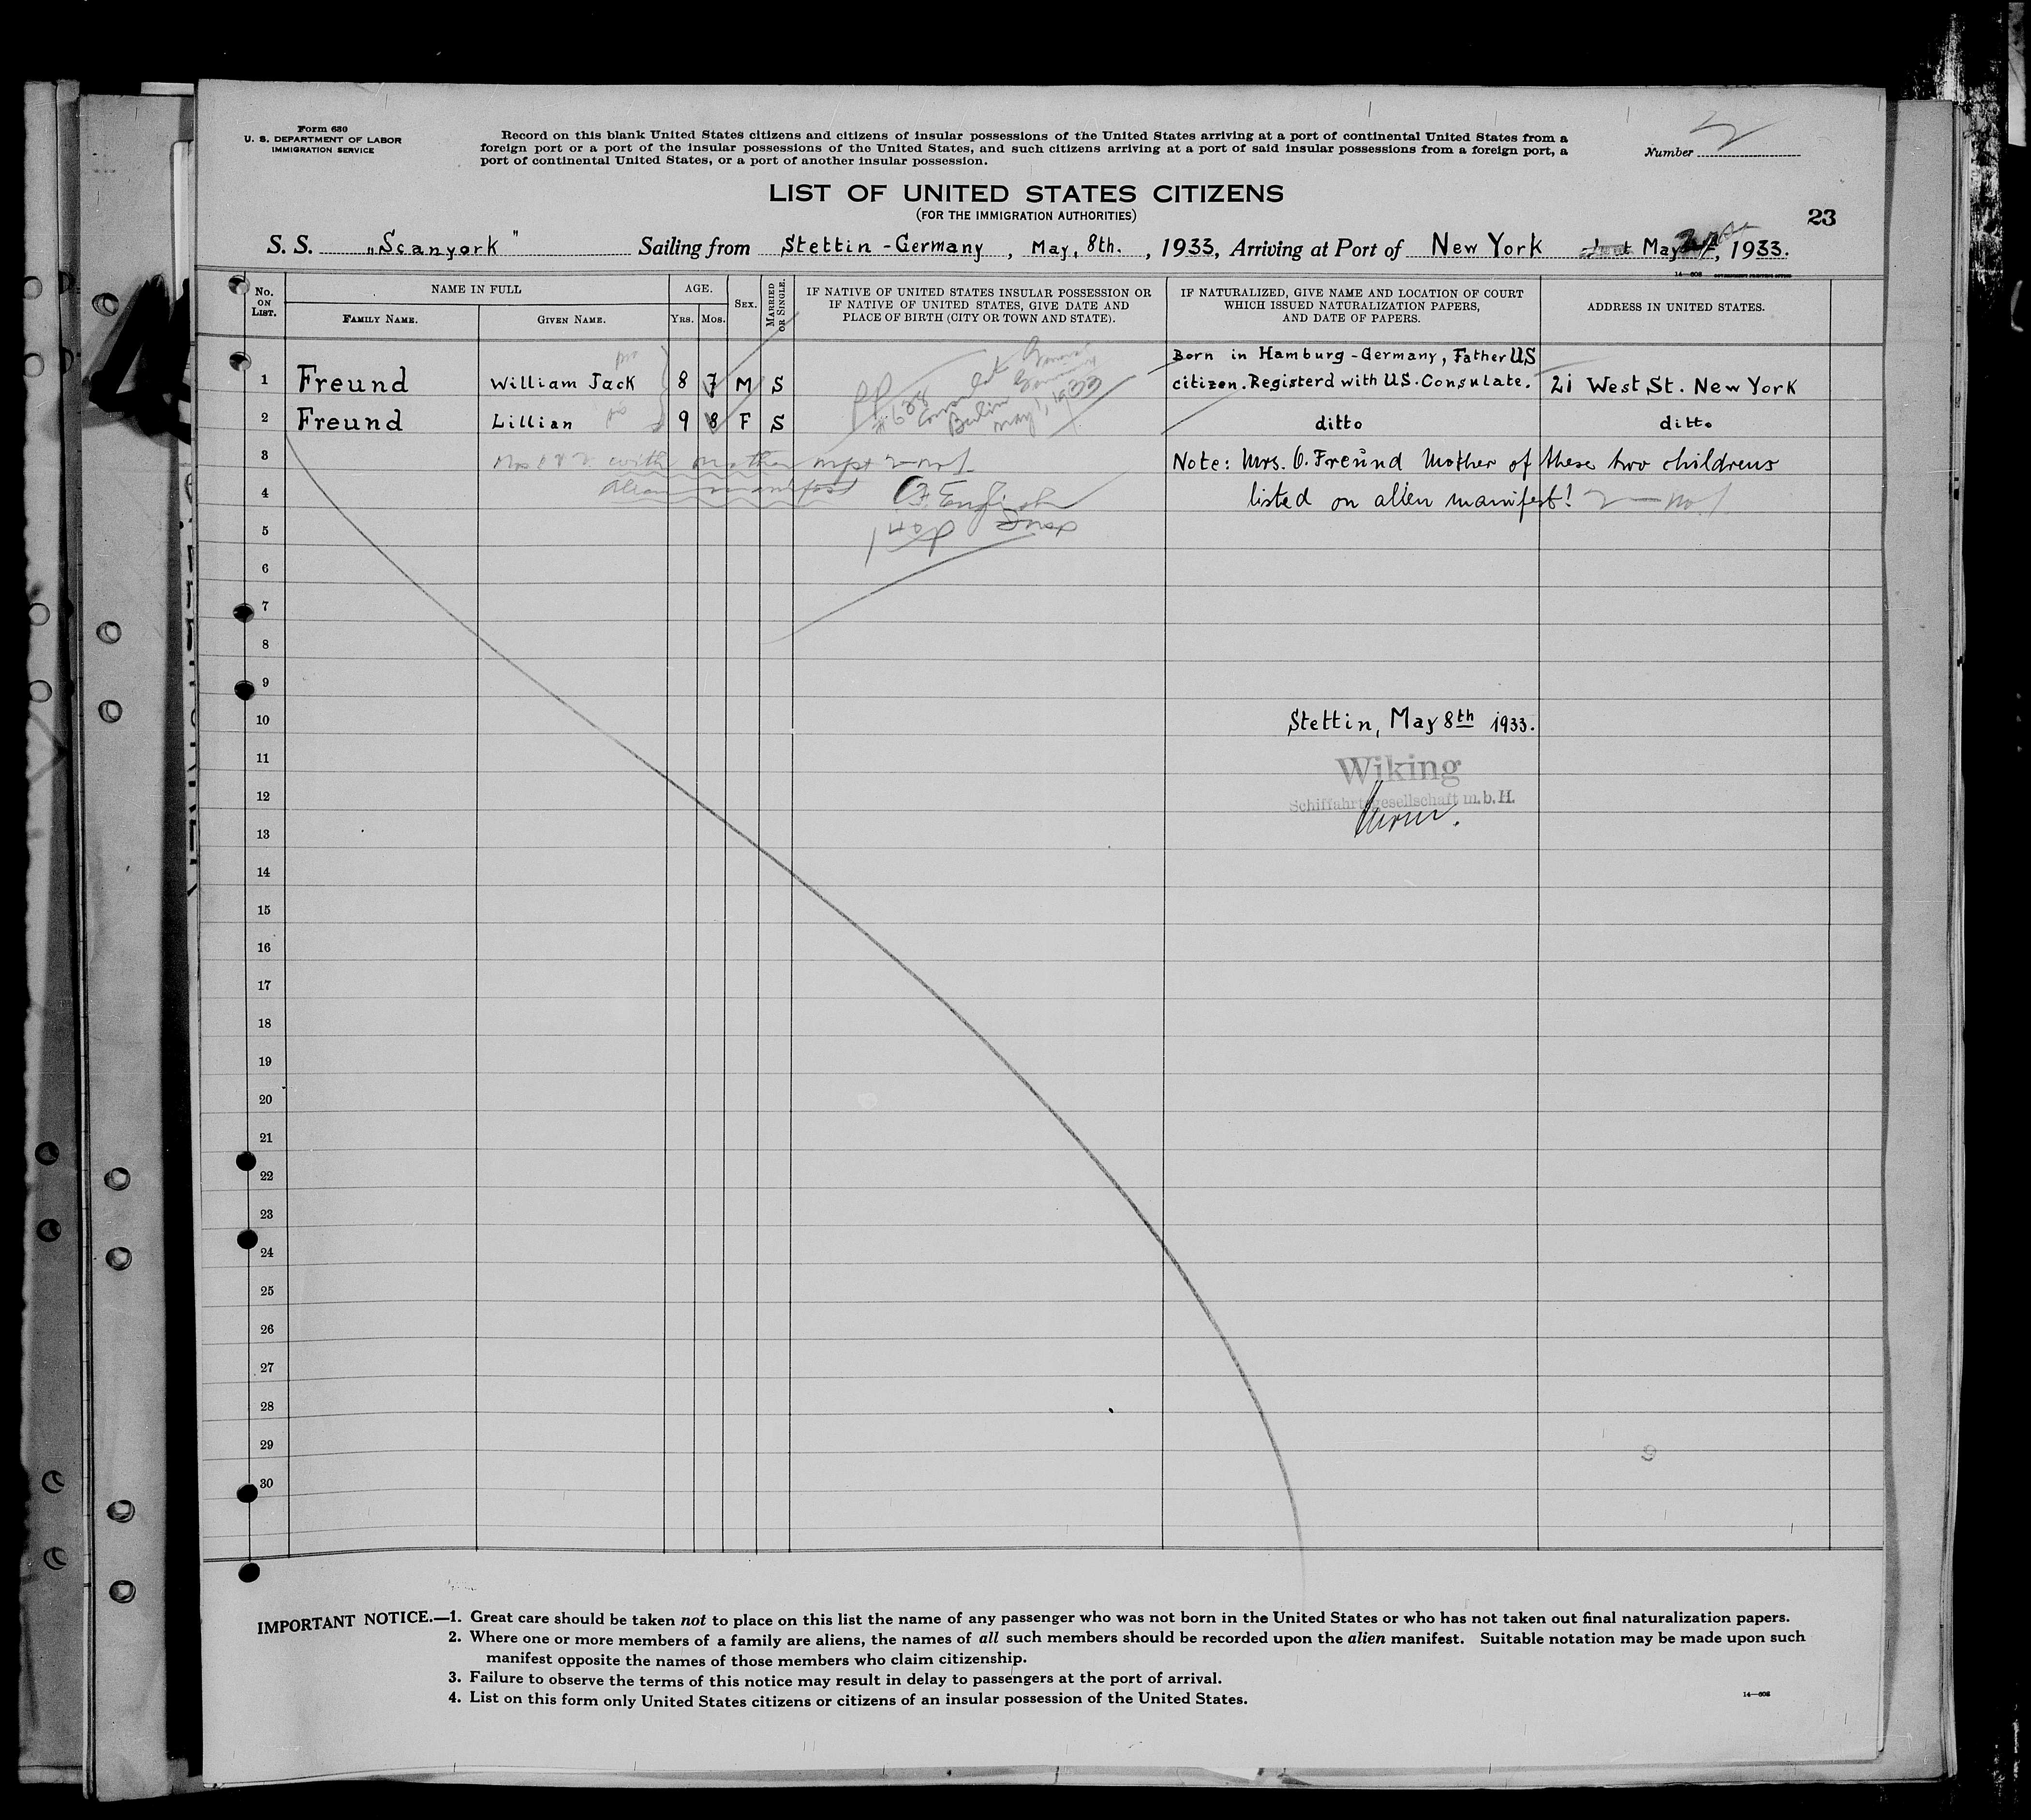 Form 630
U. S. DEPARTMENT OF LABOR
IMMIGRATION SERVICE
Record on this blank United States citizens and citizens of insular possessions of the United States arriving at a port of continental United States from a
foreign port or a port of the insular possessions of the United States, and such citizens arriving at a port of said insular possessions from a foreign port, a
port of continental United States, or a port of another insular possession.
Number 2
LIST OF UNITED STATES CITIZENS
(FOR THE IMMIGRATION AUTHORITIES)
23
S. S. „Scanyork" Sailing from Stettin - Germany, May, 8th., 1933, Arriving at Port of New York May, 1933.
14—608 GOVERNMENT PRINTING OFFICE
No. ON LIST. NAME IN FULL AGE. SEX. MARRIED OR SINGLE. IF NATIVE OF UNITED STATES INSULAR POSSESSION OR IF NATIVE OF UNITED STATES, GIVE DATE AND PLACE OF BIRTH (CITY OR TOWN AND STATE). IF NATURALIZED, GIVE NAME AND LOCATION OF COURT WHICH ISSUED NATURALIZATION PAPERS, AND DATE OF PAPERS. ADDRESS IN UNITED STATES.
FAMILY NAME. GIVEN NAME. YRS. MOS.
Born in Hamburg - Germany, Father US
1 Freund William Jack 8 7 M S citizen. Registerd with US. Consulate. 21 West St. New York
PP #638 Consulat General Berlin Germany May 1, 1933
2 Freund Lillian 9 8 F S ditto ditto
3 Nos 1 & 2 with mother Note: Mrs. O. Freund Mother of these two childrens
4 alien manifest listed on alien manifest! 2 — no. 1
5
6
7
8
9
10 Stettin, May 8th 1933.
11 Wiking
12 Schiffahrtsgesellschaft m.b.H.
13
14
15
16
17
18
19
20
21
22
23
24
25
26
27
28
29
9
30
IMPORTANT NOTICE.—1. Great care should be taken not to place on this list the name of any passenger who was not born in the United States or who has not taken out final naturalization papers.
2. Where one or more members of a family are aliens, the names of all such members should be recorded upon the alien manifest. Suitable notation may be made upon such
manifest opposite the names of those members who claim citizenship.
3. Failure to observe the terms of this notice may result in delay to passengers at the port of arrival.
4. List on this form only United States citizens or citizens of an insular possession of the United States.
14—608